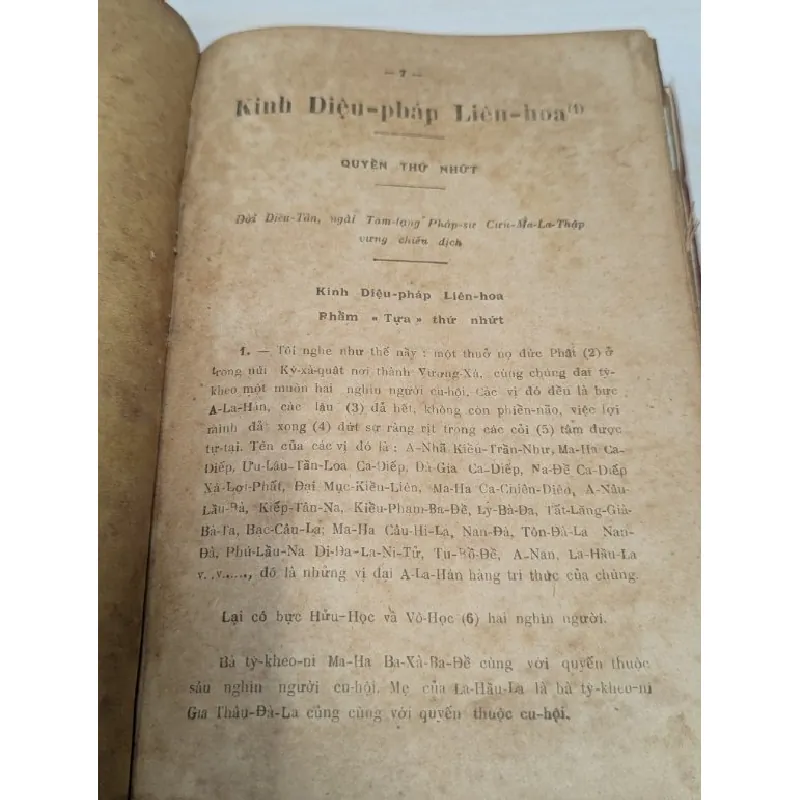 — 7 —
Kinh Diệu-pháp Liên-hoa(1)
QUYỀN THỨ NHỨT
Đời Diêu-Tần, ngài Tam-tạng Pháp-sư Cưu-Ma-La-Thập
vưng chiếu dịch
Kinh Diệu-pháp Liên-hoa
Phẩm « Tựa » thứ nhứt
1. — Tôi nghe như thế này : một thuở nọ đức Phật (2) ở
trong núi Kỳ-xà-quật nơi thành Vương-Xá, cùng chúng đại tỳ-
kheo một muôn hai nghìn người cu-hội. Các vị đó đều là bực
A-La-Hán, các lậu (3) đã hết, không còn phiền-não, việc lợi
mình đã xong (4) dứt sự ràng rịt trong các cõi (5) tâm được
tự-tại. Tên của các vị đó là : A-Nhã Kiều-Trần-Như, Ma-Ha Ca-
Diếp, Ưu-Lâu-Tần-Loa Ca-Diếp, Dà-Gia Ca-Diếp, Na-Đề Ca-Diếp
Xá-Lợi-Phất, Đại Mục-Kiền-Liên, Ma-Ha Ca-Chiên-Diên, A-Nâu-
Lâu-Đà, Kiếp-Tân-Na, Kiều-Phạm-Ba-Đề, Ly-Bà-Đa, Tất-Lăng-Già-
Bà-Ta, Bạc-Câu-La; Ma-Ha Câu-Hi-La, Nan-Đà, Tôn-Đà-La Nan-
Đà, Phú-Lầu-Na Di-Đa-La-Ni-Tử, Tu-Bồ-Đề, A-Nan, La-Hầu-La
v. .v....., đó là những vị đại A-La-Hán hàng tri thức của chúng.
Lại có bực Hữu-Học và Vô-Học (6) hai nghìn người.
Bà tỳ-kheo-ni Ma-Ha Ba-Xà-Ba-Đề cùng với quyến thuộc
sáu nghìn người cu-hội. Mẹ của La-Hầu-La là bà tỳ-kheo-ni
Gia Thâu-Đà-La cũng cùng với quyến thuộc cu-hội.